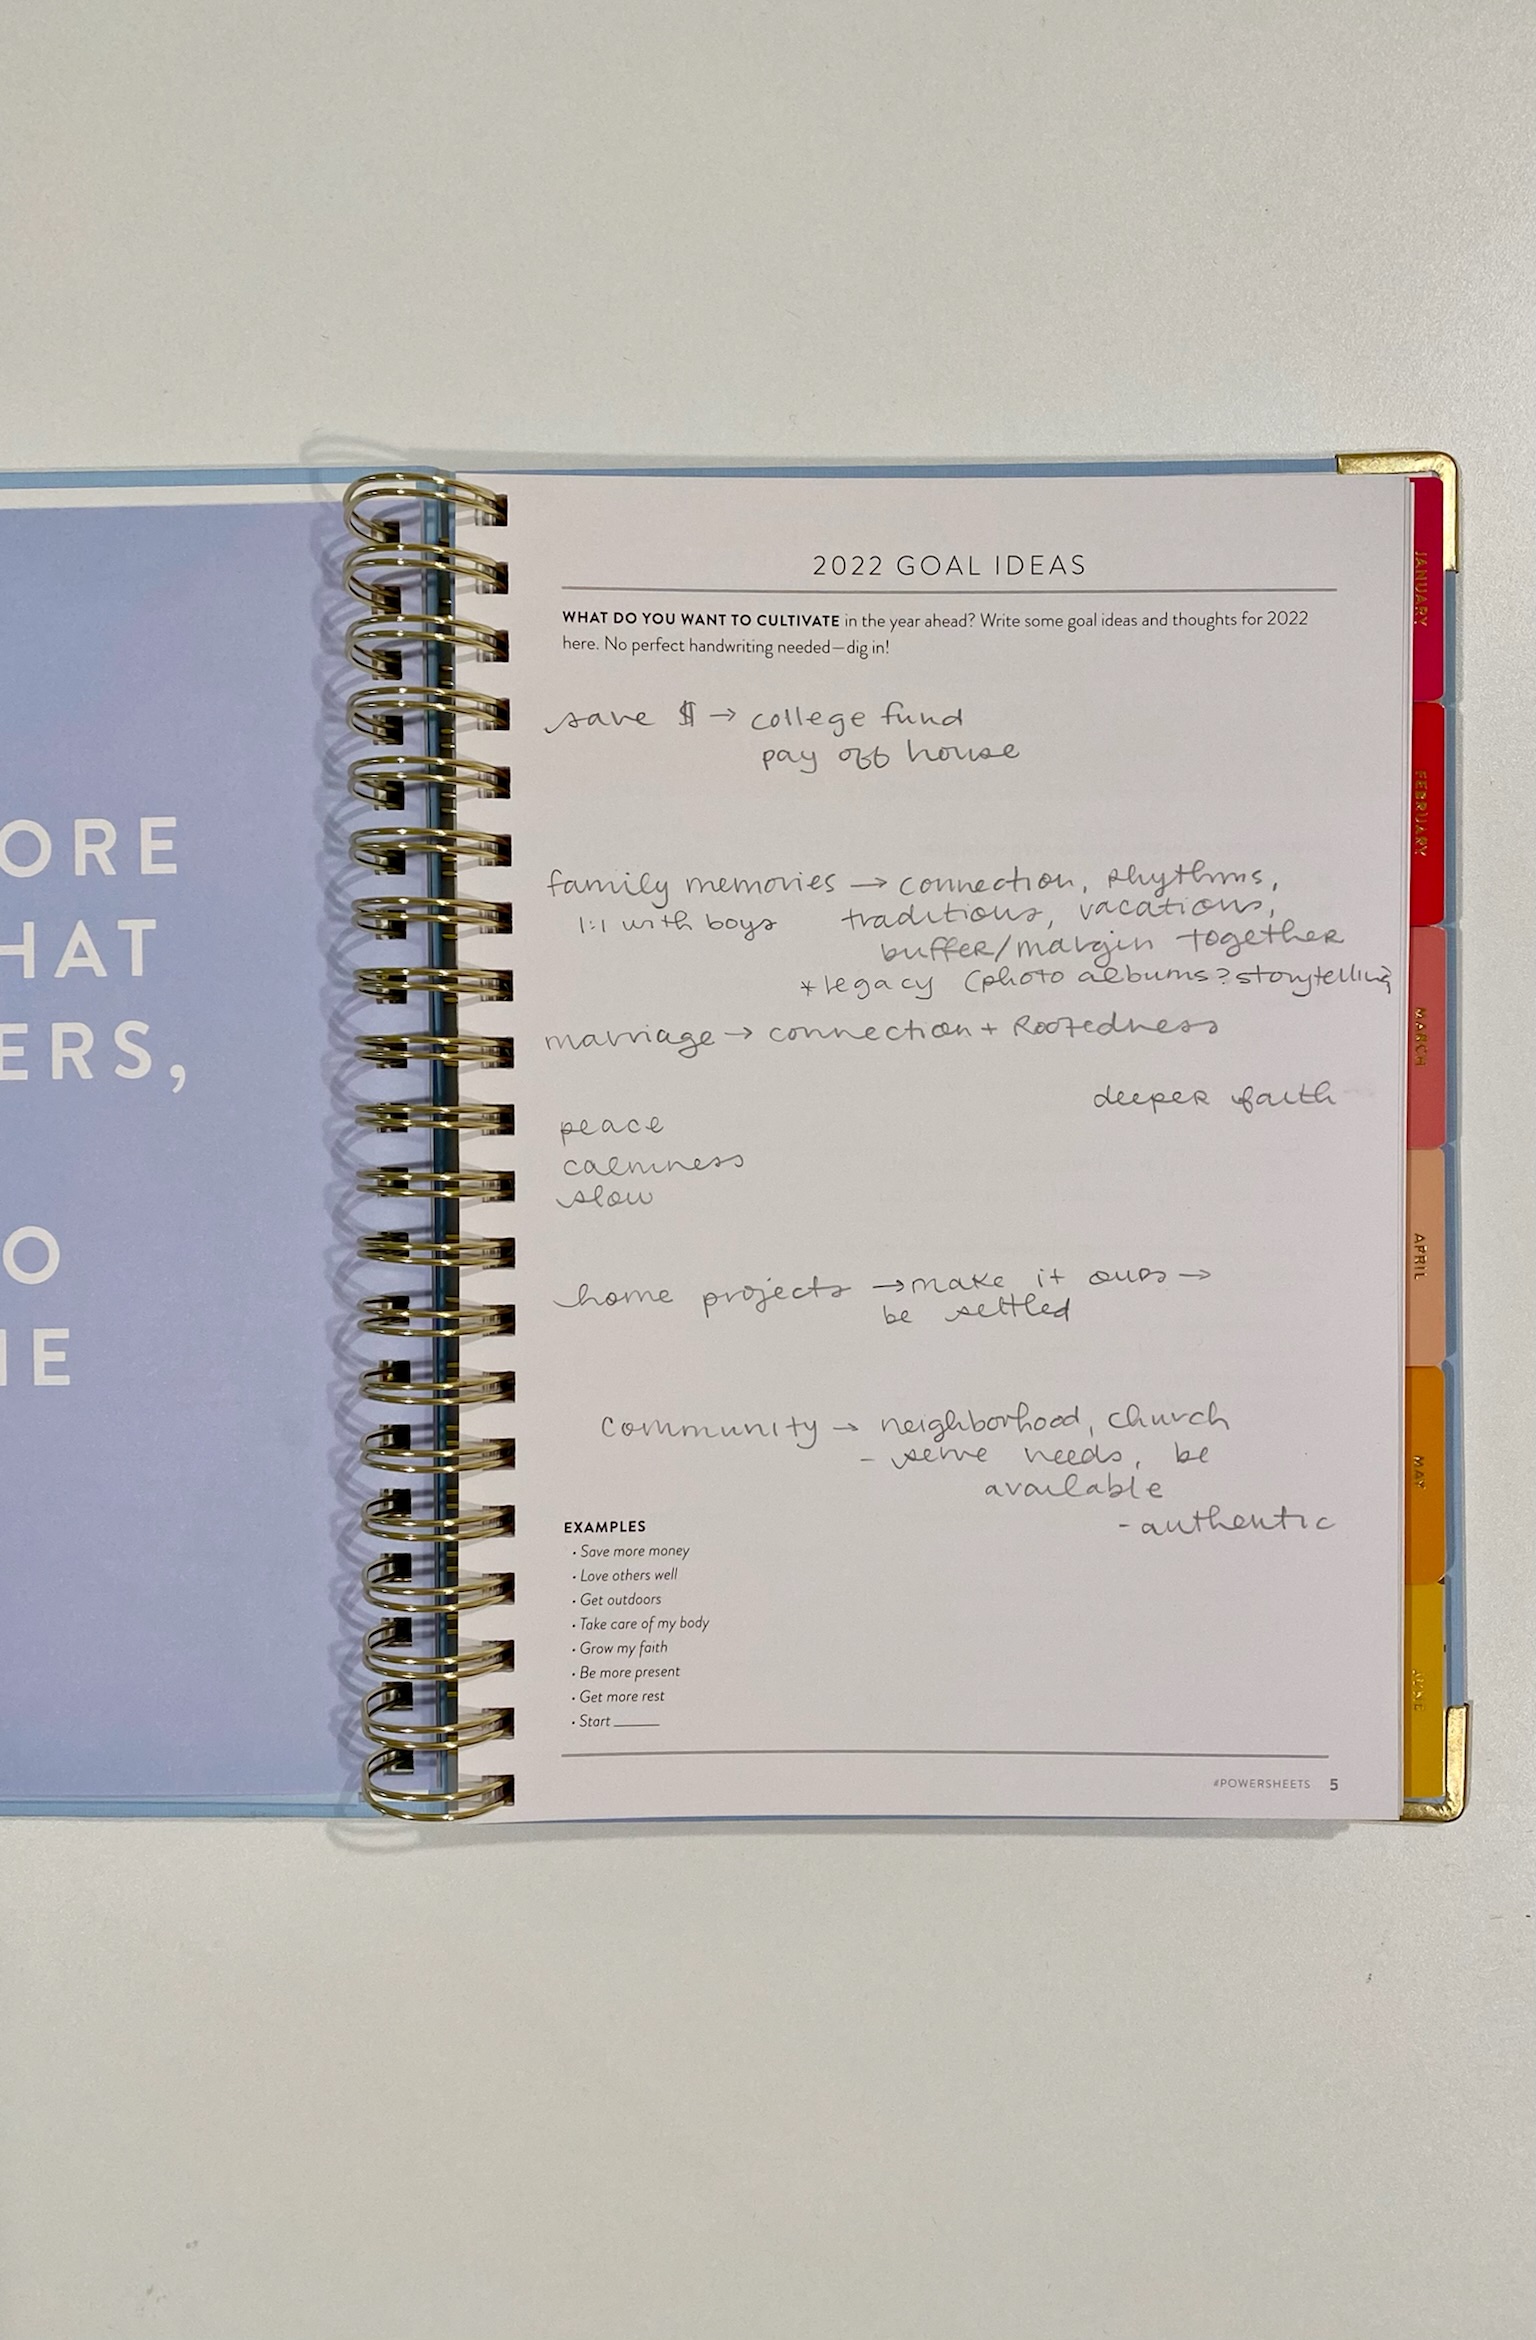 ORE
HAT
ERS,
O
NE
2022 GOAL IDEAS
WHAT DO YOU WANT TO CULTIVATE in the year ahead? Write some goal ideas and thoughts for 2022
here. No perfect handwriting needed—dig in!
save $ → college fund
pay off house
family memories → connection, rhythms,
1:1 with boys traditions, vacations,
buffer/margin together
*legacy (photo albums? storytelling
marriage → connection + Rootedness
deeper faith
peace
calmness
slow
home projects → make it ours →
be settled
community → neighborhood, church
- serve needs, be
available
- authentic
EXAMPLES
• Save more money
• Love others well
• Get outdoors
• Take care of my body
• Grow my faith
• Be more present
• Get more rest
• Start ______
#POWERSHEETS 5
JANUARY
FEBRUARY
MARCH
APRIL
MAY
JUNE